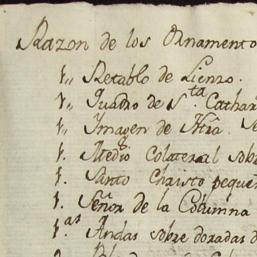 Razon de los Ornamento
1,, Retablo de Lienzo.
1,, Quadro de Sta. Cathar
1,, Ymagen de Ntra. Se
1. Medio Colateral sobr
1. Santo Christo peque
1. Señor de la Columna
1. as Andas sobre doradas d